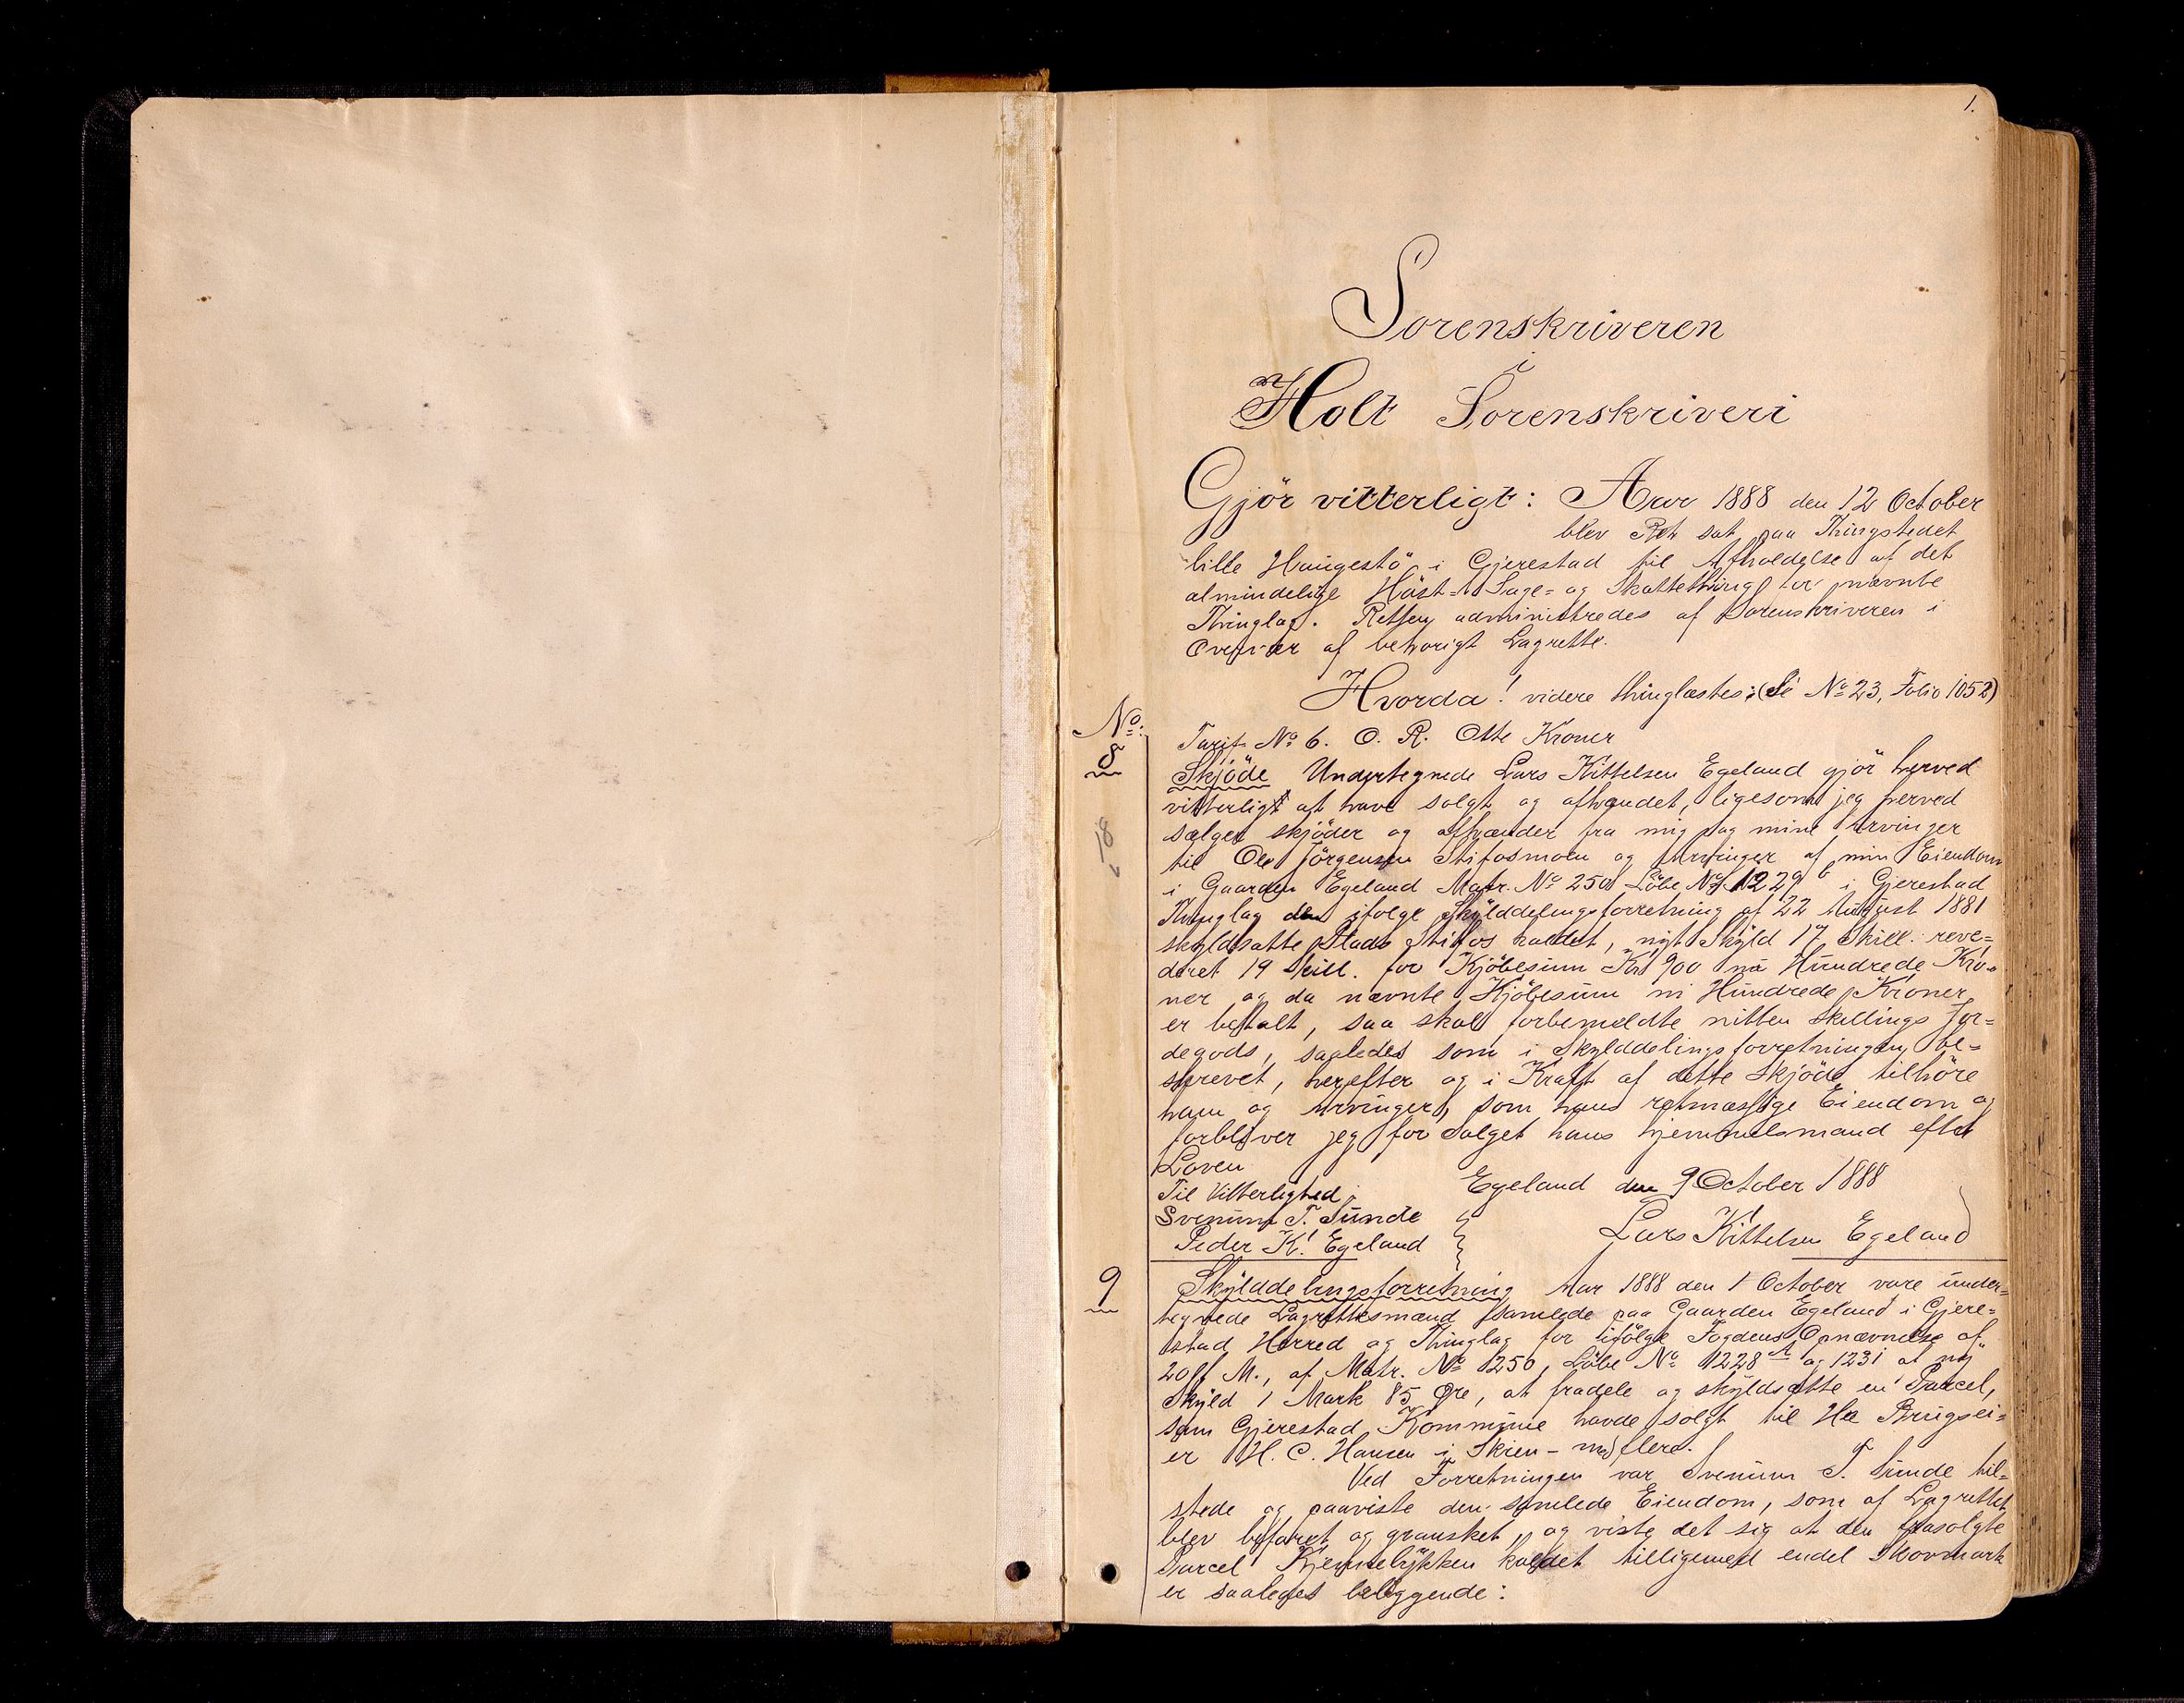 1.
Sorenskriveren
i
Holt Sorenskriveri
Gjör vitterligt: Aar 1888 den 12 October
blev Ret sat paa Thingstedet
lille Haugestö i Gjerestad til Afholdelse af det
almindelige Höst- Sage- og Skattething for nævnte
Thinglag. Retten administredes af Sorenskriveren i
Overvær af behorigt Lagrette.
Hvorda! videre thinglæstes: (Se No 23, Folio 1052)
No:
Tarif No 6. O. R. Otte Kroner
8
Skjöde Undertegnede Lars Kittelsen Egeland gjör herved
vitterligt at have solgt og afhændet, ligesom jeg herved
sælger skjöder og afhænder fra mig og mine Arvinger
til Ole Jörgensen Stifosmoen og Arvinger af min Eiendom
i Gaarden Egeland Matr. No 250 Löbe No 1229 b i Gjerestad
Thinglag den ifolge Skylddelingsforretning af 22 August 1881
skyldsatte Plads Stifos kaldet, nyt Skyld 17 Skill. reve=
deret 19 Skill. for Kjöbesum Kr 900 ni Hundrede Kro=
ner og da nævnte Kjöbesum ni Hundrede Kroner
er betalt, saa skal forbemeldte nitten Skillings Jor=
degods, saaledes som i Skylddelingsforretningen be=
skrevet, herefter og i Kraft af dette Skjöde tilhöre
ham og Arvinger, som hans retmæssige Eiendom og
forbliver jeg for Salget hans hjemmelsmand efter
Loven
Egeland den 9 October 1888
Til Vitterlighed
Svenum T. Sunde
Lars Kittelsen Egeland
Peder K. Egeland
9
Skylddelingsforretning Aar 1888 den 1 October vare under=
tegnede Lagrettesmænd samlede paa Gaarden Egeland i Gjere=
stad Herred og Thinglag for ifölge Fogdens Opnævnelse af
20 f. M., af Matr. No 250, Löbe No 1228 A og 1231 af ny
Skyld 1 Mark 85 Øre, at fradele og skyldsætte en Parcel,
som Gjerestad Kommune havde solgt til Hr Brugsei=
er H. C. Hansen i Skien - med flere.
Ved Forretningen var Svenum T. Sunde til=
stede og paaviste den samlede Eiendom, som af Lagrettet
blev befaret og gransket, og viste det sig at den frasolgte
Parcel kaldet tilligemed endel Skovmark
er saaledes beliggende: